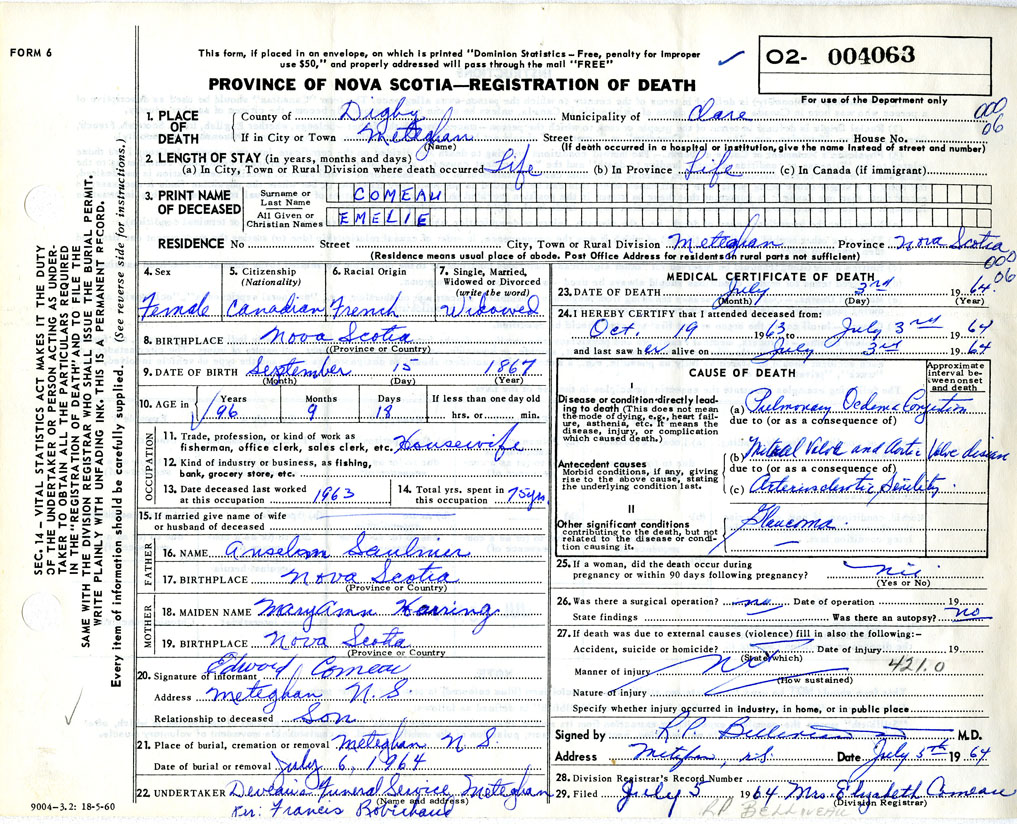 FORM 6
This form, if placed in an envelope, on which is printed "Dominion Statistics – Free, penalty for improper
use $50," and properly addressed will pass through the mail "FREE"
02- 004063
PROVINCE OF NOVA SCOTIA—REGISTRATION OF DEATH
For use of the Department only
000
06
1. PLACE OF DEATH
County of Digby Municipality of Clare
If in City or Town Meteghan Street House No.
(Name) (If death occurred in a hospital or institution, give the name instead of street and number)
2. LENGTH OF STAY (in years, months and days)
(a) In City, Town or Rural Division where death occurred Life (b) In Province Life (c) In Canada (if immigrant)
3. PRINT NAME OF DECEASED
Surname or Last Name COMEAU
All Given or Christian Names EMELIE
RESIDENCE No Street City, Town or Rural Division Meteghan Province Nova Scotia
(Residence means usual place of abode. Post Office Address for residents on rural parts not sufficient)
000
06
4. Sex
Female
5. Citizenship
(Nationality)
Canadian
6. Racial Origin
French
7. Single, Married,
Widowed or Divorced
(write the word)
Widowed
8. BIRTHPLACE Nova Scotia
(Province or Country)
9. DATE OF BIRTH September 15 1867
(Month) (Day) (Year)
10. AGE in Years Months Days If less than one day old
96 9 18 hrs. or min.
OCCUPATION
11. Trade, profession, or kind of work as
fisherman, office clerk, sales clerk, etc. Housewife
12. Kind of industry or business, as fishing,
bank, grocery store, etc.
13. Date deceased last worked
at this occupation 1963
14. Total yrs. spent in
this occupation 75 yrs
15. If married give name of wife
or husband of deceased
FATHER
16. NAME Anselm Saulnier
17. BIRTHPLACE Nova Scotia
(Province or Country)
MOTHER
18. MAIDEN NAME Mary Ann
19. BIRTHPLACE Nova Scotia
(Province or Country)
20. Signature of informant Edward Comeau
Address Meteghan N.S.
Relationship to deceased Son
21. Place of burial, cremation or removal Meteghan N.S.
Date of burial or removal July 6, 1964
22. UNDERTAKER Deveau's Funeral Service Meteghan
(Name and address)
Per: Francis Robichaud
MEDICAL CERTIFICATE OF DEATH
23. DATE OF DEATH July 3rd 1964
(Month) (Day) (Year)
24. I HEREBY CERTIFY that I attended deceased from:
Oct. 19 1963 to July 3rd 1964
and last saw her alive on July 3rd 1964
CAUSE OF DEATH
Approximate
interval be-
tween onset
and death
I
Disease or condition directly lead-
ing to death (This does not mean
the mode of dying, e.g., heart fail-
ure, asthenia, etc. It means the
disease, injury, or complication
which caused death.)
(a) Pulmonary Oedema Congestion
due to (or as a consequence of)
Antecedent causes
Morbid conditions, if any, giving
rise to the above cause, stating
the underlying condition last.
(b) Mitral Valve and Aortic Valve disease
due to (or as a consequence of)
(c) Arteriosclerotic Senility
II
Other significant conditions
contributing to the death, but not
related to the disease or condi-
tion causing it.
Glaucoma.
25. If a woman, did the death occur during
pregnancy or within 90 days following pregnancy?
(Yes or No)
26. Was there a surgical operation? no Date of operation 19
State findings Was there an autopsy? no
27. If death was due to external causes (violence) fill in also the following:–
Accident, suicide or homicide? Date of injury 19
(State which)
421.0
Manner of injury
(How sustained)
Nature of injury
Specify whether injury occurred in industry, in home, or in public place
Signed by R.P. Belliveau M.D.
Address Meteghan, N.S. Date July 5th 1964
28. Division Registrar's Record Number
29. Filed July 5 1964 Mrs. Elizabeth Comeau
(Division Registrar)
RP BELLIVEAU
SEC. 14 – VITAL STATISTICS ACT MAKES IT THE DUTY
OF THE UNDERTAKER OR PERSON ACTING AS UNDER-
TAKER TO OBTAIN ALL THE PARTICULARS REQUIRED
IN THE "REGISTRATION OF DEATH" AND TO FILE THE
SAME WITH THE DIVISION REGISTRAR WHO SHALL ISSUE THE BURIAL PERMIT.
WRITE PLAINLY WITH UNFADING INK. THIS IS A PERMANENT RECORD.
Every item of information should be carefully supplied. (See reverse side for instructions.)
9004–3.2: 18-5-60